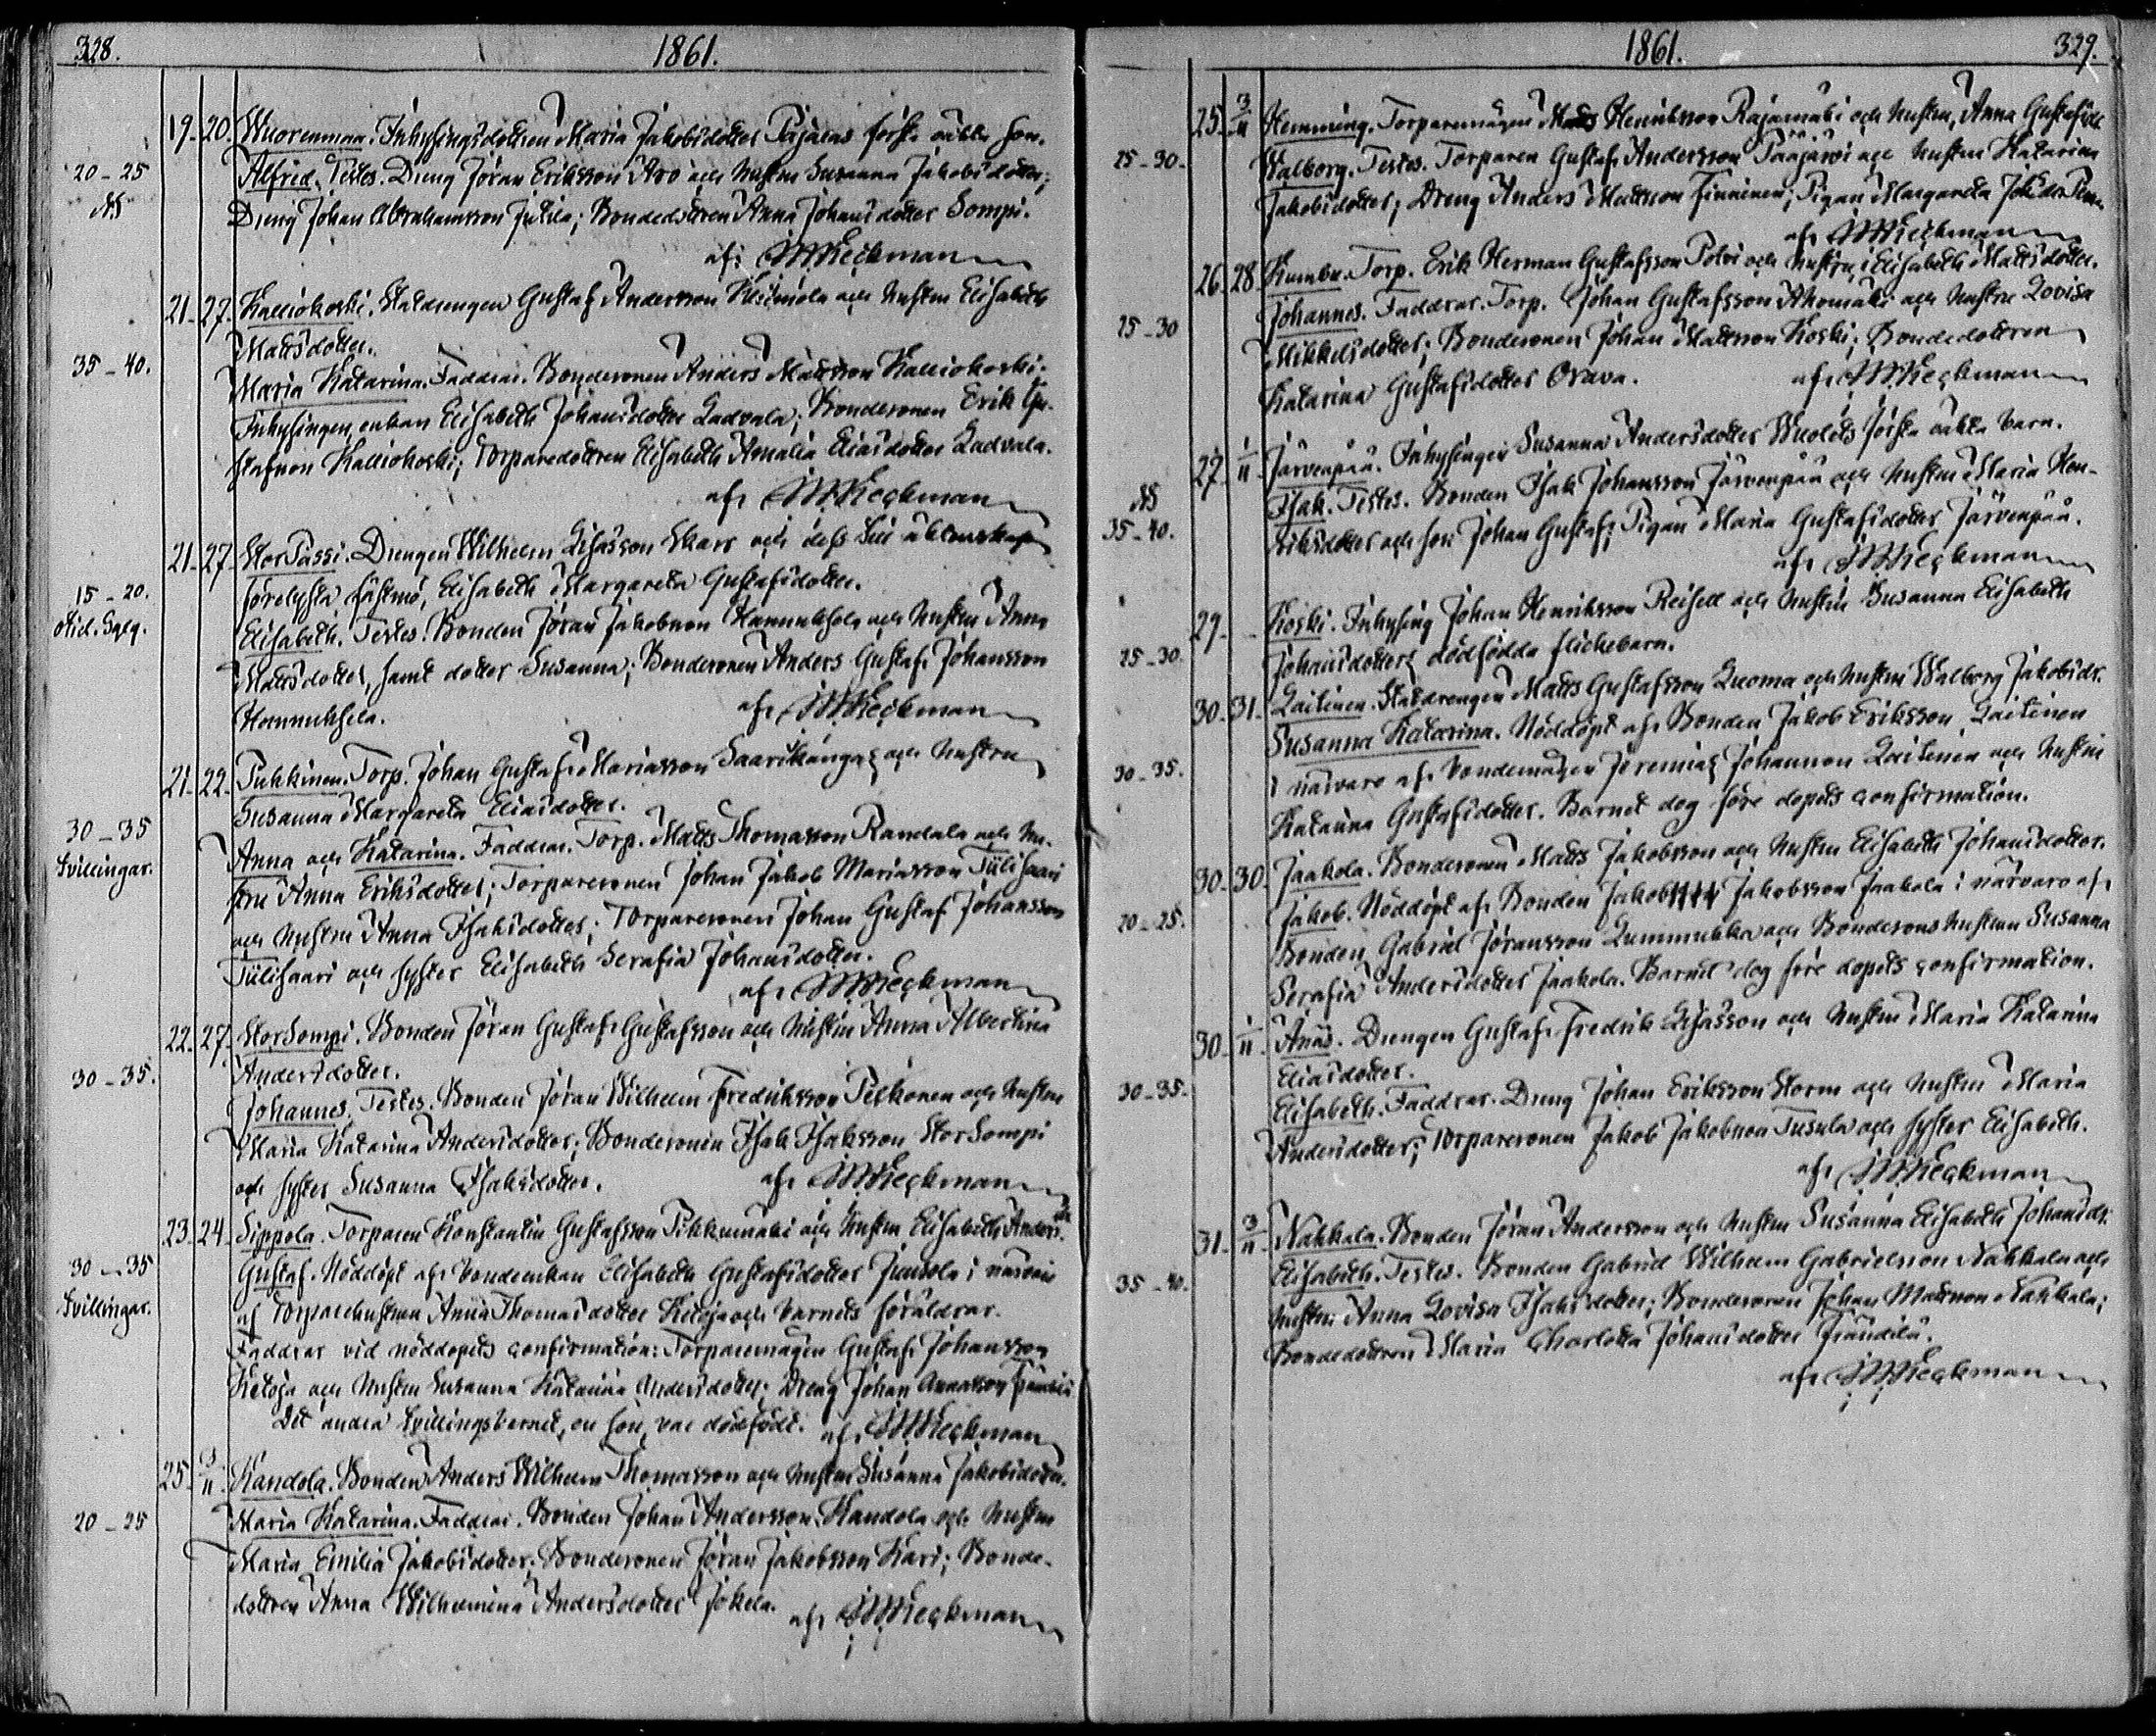 328. 1861.
19. 20. Wuorenmaa. Inhysingsdottren Maria Jakobsdotter Pajalas första oäkta son.
20-25 Alfred. Testes. Dreng Jöran Eriksson Aro och hustru Susanna Jakobsdotter;
Dreng Johan Abrahamsson Jutila; Bondedottren Anna Johansdotter Sompi.
af
21. 27. Kalliokoski. Statdrengen Gustaf Andersson och hustru Elisabeth
Mattsdotter.
35-40. Maria Katarina. Faddrar. Bondesonen Anders Mattsson Kalliokoski.
Inhysingen, enkan Elisabeth Johansdotter Ladvala; Bondesonen Erik Gu-
stafsson Kalliokoski; Torparedottren Elisabeth Amalia Eliasdotter Ladvala.
af
21. 27. StorPassi. Drengen Wilhelm Skars och dess till äktenskap
15-20. förelysta fästmö, Elisabeth Margareta Gustafsdotter.
Elisabeth. Testes. Bonden Jöran Jakobsson Hannuksela och hustru Anna
Mattsdotter, samt dotter Susanna; Bondesonen Anders Gustaf Johansson
Hannuksela. af
21. 22. Puhkinen. Torp. Johan Gustaf Mariasson Saarikangas och hustru
Susanna Margareta Eliasdotter.
30-35 Anna och Katarina. Faddrar. Torp. Matts Thomasson Randala och hu-
Tvillingar. stru Anna Eriksdotter; Torparesonen Johan Jakob Mariasson Tiilisaari
och hustru Anna Isaksdotter; Torparesonen Johan Gustaf Johansson
Tiilisaari och syster Elisabeth Serafia Johansdotter.
af
22. 27. StorSompi. Bonden Jöran Gustaf Gustafsson och hustru Anna Albertina
30-35. Andersdotter.
Johannes. Testes. Bonden Jöran Wilhelm Fredriksson Pelkonen och hustru
Maria Katarina Andersdotter; Bondesonen Isak Isaksson StorSompi
och syster Susanna Isaksdotter. af
23. 24. Sippola. Torparen Konstantin Gustafsson och hustru Elisabeth Anders-
30-35 Gustaf. Nöddöpt af bondeenkan Elisabeth Gustafsdotter i närvaro
Tvillingar. af Torparehustrun Anna Thomasdotter Ketoja och barnets föräldrar.
Faddrar vid nöddopets confirmation: Torparemågen Gustaf Johansson
Ketoja och hustru Susanna Katarina Andersdotter; Dreng Johan
Det andra tvillingsbarnet, en son, var dödfödt. af
25. 3/11. Kandola. Bonden Anders Wilhelm Thomasson och hustru Susanna Jakobsdotter.
20-25 Maria Katarina. Faddrar. Bonden Johan Andersson Kandola och hustru
Maria Emilia Jakobsdotter; Bondesonen Jöran Jakobsson Kari; Bonde-
dottren Anna Wilhelmina Andersdotter Jokela. af
1861. 329.
25. 3/11 Hemming. Torparemågen Matts Henriksson Rajamäki och hustru, Anna Gustafsdr.
25-30. Walborg. Testes. Torparen Gustaf Andersson Pääjärvi och hustru Katarina
Jakobsdotter; Dreng Anders Mattsson Finninen; Pigan Margareta
af
26. 28. Kumbu. Torp. Erik Herman Gustafsson Polvi och hustru, Elisabeth Mattsdotter.
25-30 Johannes. Faddrar. Torp. Johan Gustafsson Ahomäki och hustru Lovisa
Mikkelsdotter; Bondesonen Johan Mattsson Koski; Bondedottren
Katarina Gustafsdotter Orava. af
27. 1/11 Järvenpää. Inhysingen Susanna Andersdotter första oäkta barn.
35-40. Isak. Testes. Bonden Isak Johansson Järvenpää och hustru Maria Hen-
riksdotter och son Johan Gustaf; Pigan Maria Gustafsdotter Järvenpää.
af
29. Koski. Inhysing Johan Henriksson Reisell och hustru Susanna Elisabeth
25-30. Johansdotters dödfödda flickebarn.
30. 31. Laitinen. Statdrengen Matts Gustafsson Luoma och hustru Walborg Jakobsdr.
Susanna Katarina. Nöddöpt af Bonden Jakob Eriksson Laitinen
30-35. i närvaro af bondemågen Jeremias Johansson Laitinen och hustru
Katarina Gustafsdotter. Barnet dog före dopets confirmation.
30. 30. Jaakola. Bondesonen Matts Jakobsson och hustru Elisabeth Johansdotter.
20-25. Jakob. Nöddöpt af Bonden Jakob Jakobsson Jaakola i närvaro af
Bonden Gabriel Jöransson Lummukka och Bondesons hustrun Susanna
Serafia Andersdotter Jaakola. Barnet dog före dopets confirmation.
30. 1/11. Änäs. Drengen Gustaf Fredrik och hustru Maria Katarina
Eliasdotter.
30-35. Elisabeth. Faddrar. Dreng Johan Eriksson Storm och hustru Maria
Andersdotter; Torparesonen Jakob Jakobsson Tusula och syster Elisabeth.
af
31. 3/11. Nahkala. Bonden Jöran Andersson och hustru Susanna Elisabeth Johansdr.
35-40. Elisabeth. Testes. Bonden Gabriel Wilhelm Gabrielsson Nahkala och
hustru Anna Lovisa Isaksdotter; Bondesonen Johan Mattsson Nahkala;
Bondedottren Maria Charlotta Johansdotter
af